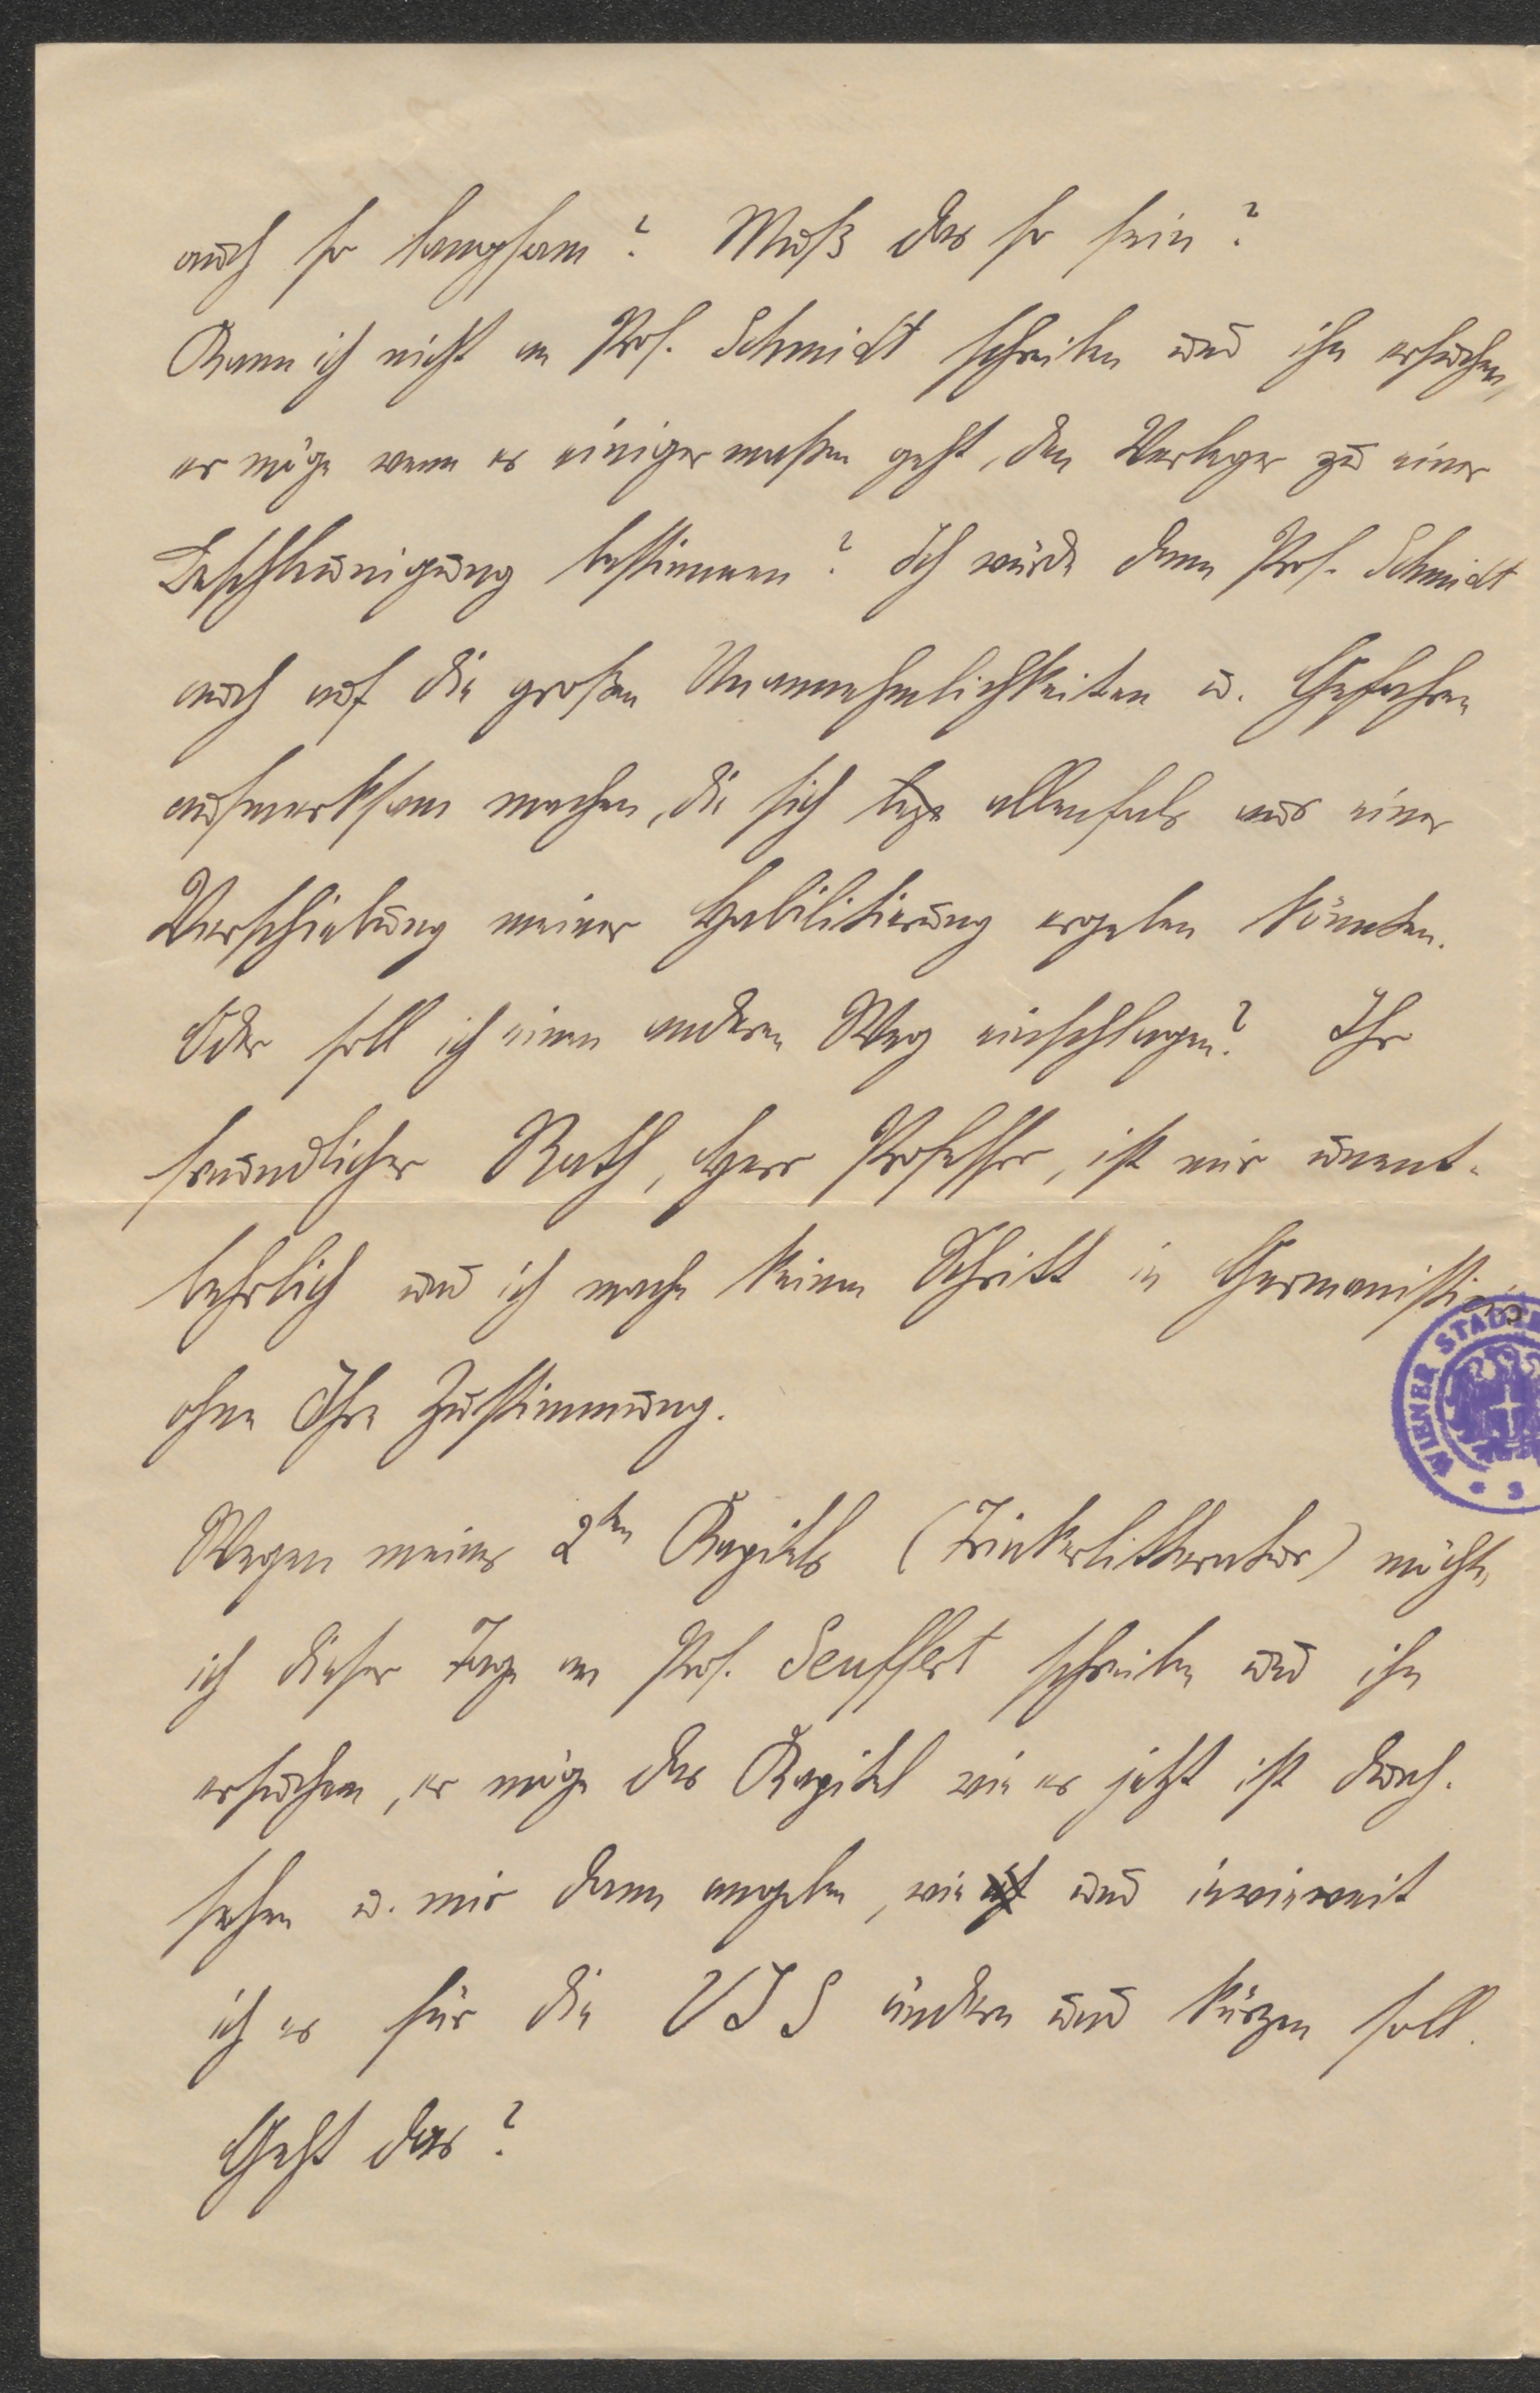 auch so langsam? Muß das so sein?
Kann ich nicht an Prof. Schmidt schreiben und ihn ersuchen,
er möge wenn es einigermaßen geht, den Verleger zu einer
Beschleunigung bestimmen? Ich würde dem Prof. Schmidt
auch auf die großen Unannehmlichkeiten u. Gefahren
aufmerksam machen, die sich allenfals aus einer
Verschiebung meiner Habilitierung ergeben könnten.
Oder soll ich einen anderen Weg einschlagen? Ihr
freundlicher Rath, Herr Professor, ist mir unent-
behrlich und ich mache keinen Schritt in Germanisticis
ohne Ihre Zustimmung.
Wegen meines 2ten Kapitels (Trinkerlitteratur) möchte
ich dieser Tage an Prof. Seuffert schreiben und ihn
ersuchen, er möge das Kapitel wie es jetzt ist durch-
sehen u. mir dann angeben, wie und inwieweit
ich es für die VJS ändern und kürzen soll.
Geht das?
WIENER STADT